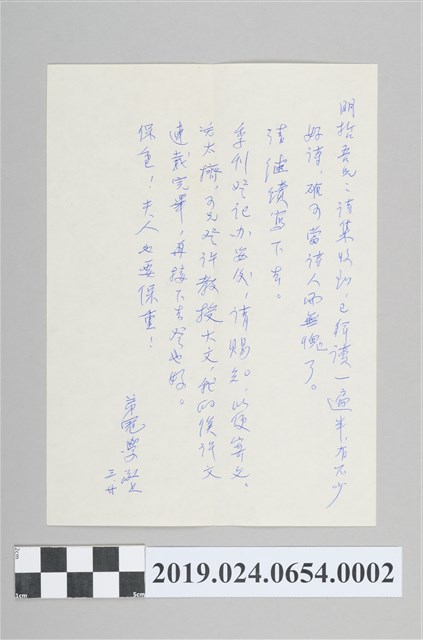 明哲吾兄：詩集收到，已拜讀一遍半，有不少
好詩，確可當詩人而無愧了。
請繼續寫下去。
季刊登記办妥後，請賜知。以便寄文。
太擠，可先登許教授大文，我的俟許文
連載完畢，再接下去登也好。
保重！夫人也要保重！
弟冠學
三.廿
2cm
1cm
5cm
2019.024.0654.0002